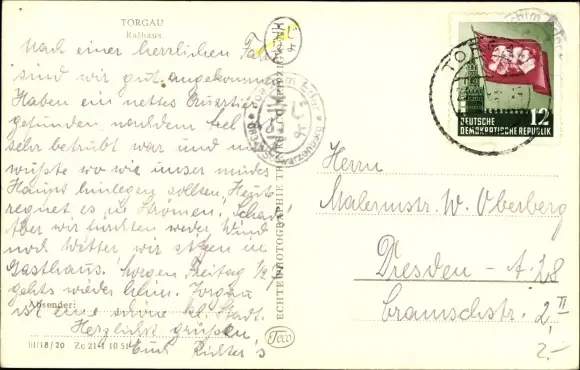 TORGAU
Rathaus
Nach einer herrlichen
sind wir gut angekommen
Haben ein nettes Quartier
gefunden, nachdem
sehr betrübt war und
wußte wo wir unser müdes
Haupt hinlegen sollten, Heute
regnet es in Strömen, Schade
Aber wir fürchten weder Wind
noch Wetter, wir sitzen im
Gasthaus. Morgen Freitag
gehts wieder heim. Torgau
ist eine schöne kl. Stadt.
Herzlichst grüßen,
Euch Richter's
Absender:
III/18/20 Zc 21-1 10 51
ECHTE PHOTOGRAPHIE
Teco
TORGAU
DEUTSCHE
DEMOKRATISCHE REPUBLIK
12
Herrn
Malermstr. W. Oberberg
Dresden - A. 28
2 II
2.-